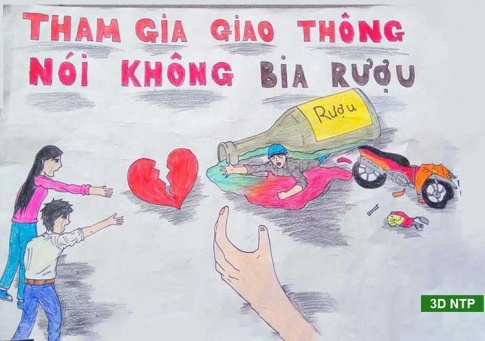 THAM GIA GIAO THÔNG
NÓI KHÔNG BIA RƯỢU
Rượu
3D NTP